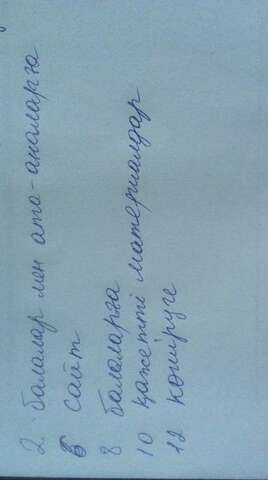 2 балалар мен ата-аналарға
5 сайт
8 балаларға
10 қажетті материалдар
12 көшіруге